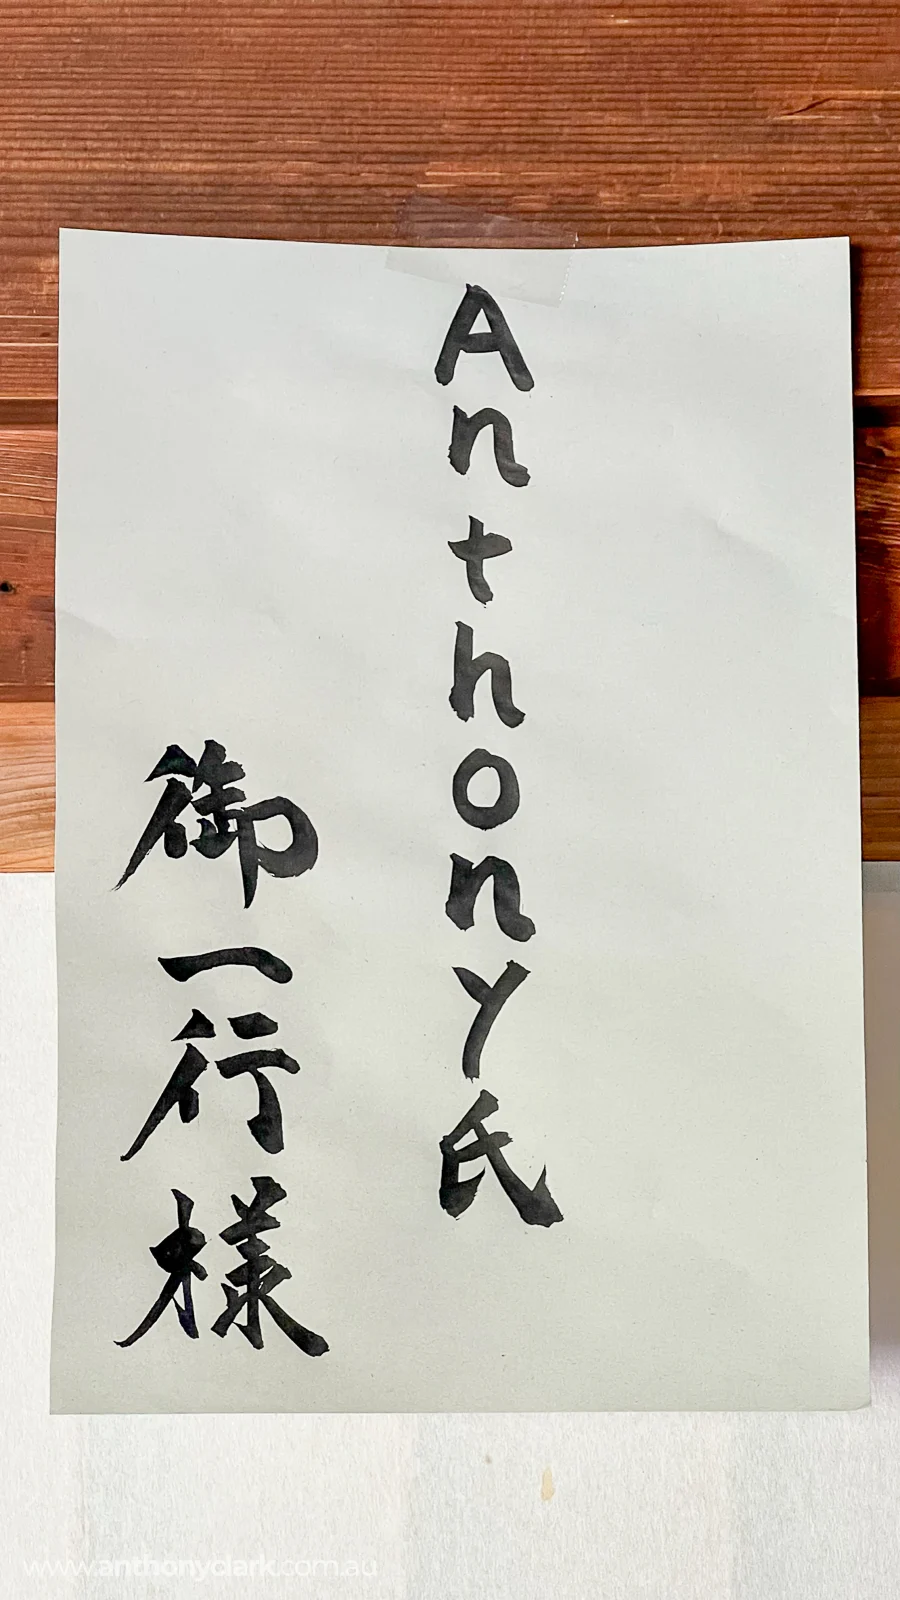 Anthony氏
御一行様
www.anthonyclark.com.au